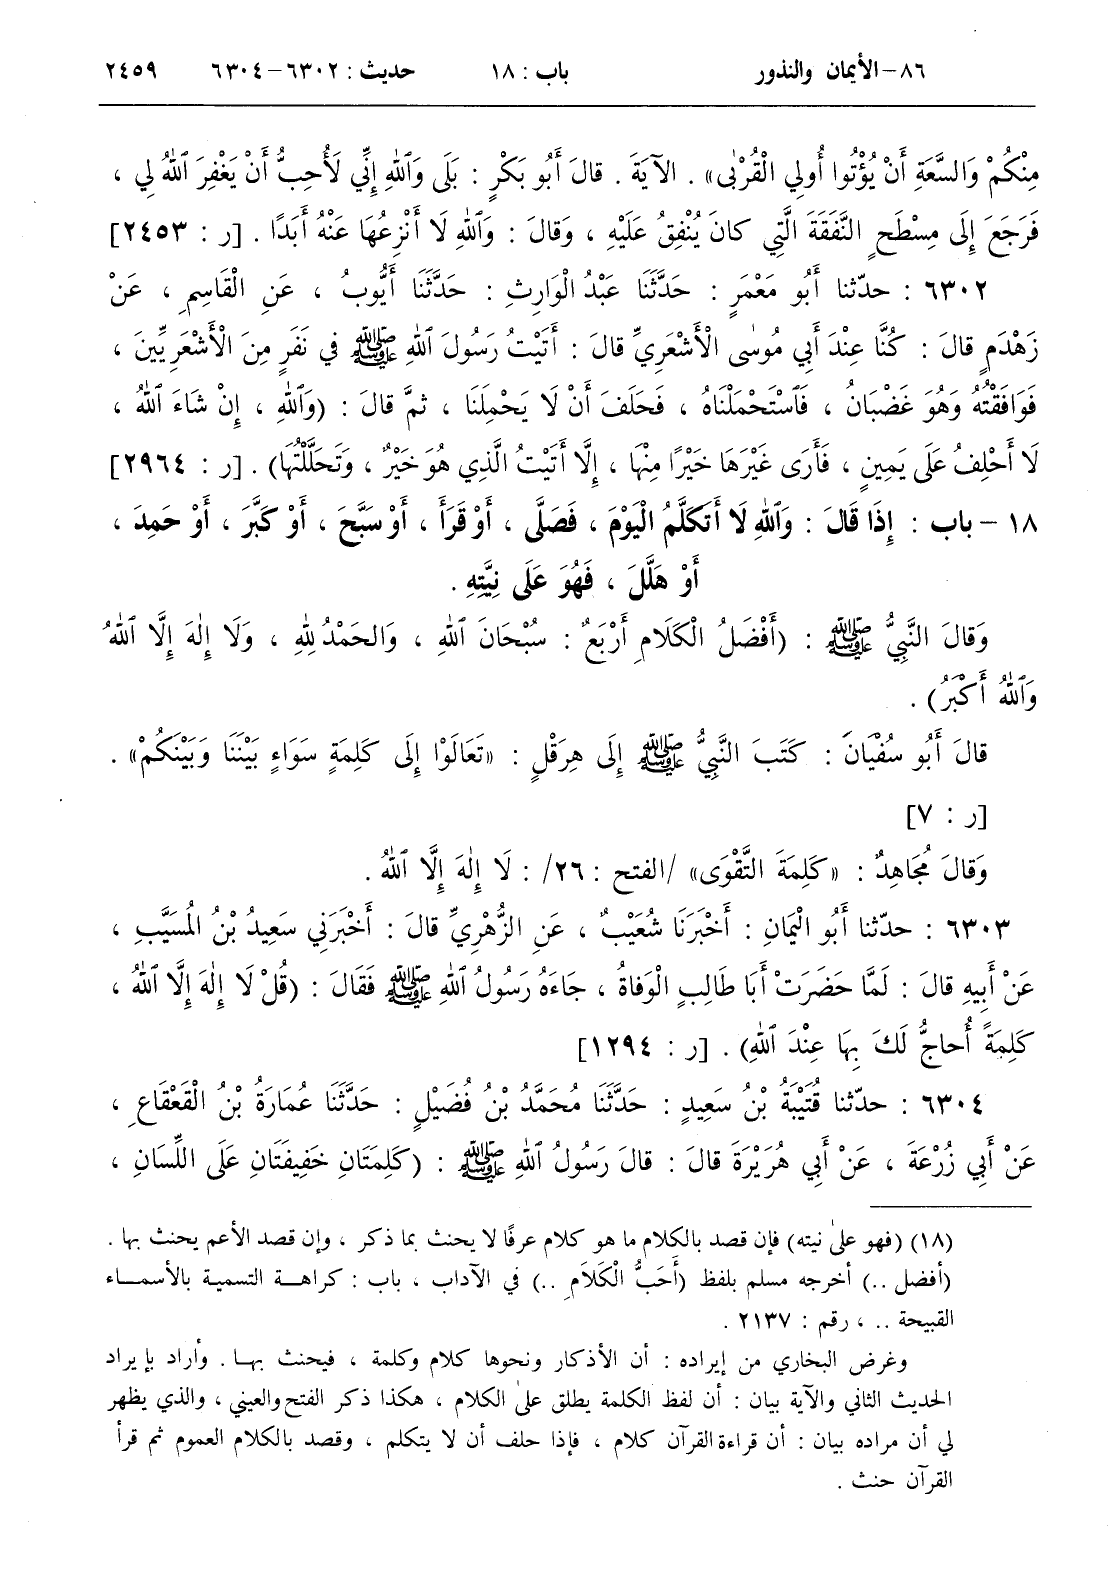 ٨٦-الأيمان والنذور باب : ١٨ حديث : ٦٣٠٢-٦٣٠٤ ٢٤٥٩
مِنْكُمْ وَالسَّعَةِ أَنْ يُؤْتُوا أُولِي الْقُرْبٰى» . الآيَةَ . قالَ أَبُو بَكْرٍ : بَلَى وَٱللهِ إِنِّي لَأُحِبُّ أَنْ يَغْفِرَ ٱللهُ لِي ،
فَرَجَعَ إِلَى مِسْطَحٍ النَّفَقَةَ الَّتِي كانَ يُنْفِقُ عَلَيْهِ ، وَقالَ : وَٱللهِ لَا أَنْزِعُهَا عَنْهُ أَبَدًا . [ر : ٢٤٥٣]
٦٣٠٢ : حدّثنا أَبُو مَعْمَرٍ : حَدَّثَنَا عَبْدُ الْوَارِثِ : حَدَّثَنَا أَيُّوبُ ، عَنِ الْقَاسِمِ ، عَنْ
زَهْدَمٍ قالَ : كُنَّا عِنْدَ أَبِي مُوسٰى الْأَشْعَرِيِّ قالَ : أَتَيْتُ رَسُولَ ٱللهِ ﷺ فِي نَفَرٍ مِنَ الْأَشْعَرِيِّينَ ،
فَوَافَقْتُهُ وَهُوَ غَضْبَانُ ، فَٱسْتَحْمَلْنَاهُ ، فَحَلَفَ أَنْ لَا يَحْمِلَنَا ، ثمَّ قالَ : (وَٱللهِ ، إِنْ شَاءَ ٱللهُ ،
لَا أَحْلِفُ عَلَى يَمِينٍ ، فَأَرَى غَيْرَهَا خَيْرًا مِنْهَا ، إِلَّا أَتَيْتُ الَّذِي هُوَ خَيْرٌ ، وَتَحَلَّلْتُهَا) . [ر : ٢٩٦٤]
١٨ - باب : إِذَا قَالَ : وَٱللهِ لَا أَتَكَلَّمُ الْيَوْمَ ، فَصَلَّى ، أَوْ قَرَأَ ، أَوْ سَبَّحَ ، أَوْ كَبَّرَ ، أَوْ حَمِدَ ،
أَوْ هَلَّلَ ، فَهُوَ عَلَى نِيَّتِهِ .
وَقَالَ النَّبِيُّ ﷺ : (أَفْضَلُ الْكَلَامِ أَرْبَعٌ : سُبْحَانَ ٱللهِ ، وَالحَمْدُ لِلهِ ، وَلَا إِلٰهَ إِلَّا ٱللهُ
وَٱللهُ أَكْبَرُ) .
قالَ أَبُو سُفْيَانَ : كَتَبَ النَّبِيُّ ﷺ إِلَى هِرَقْلٍ : «تَعَالَوْا إِلَى كَلِمَةٍ سَوَاءٍ بَيْنَنَا وَبَيْنَكُمْ» .
[ر : ٧]
وَقَالَ مُجَاهِدٌ : «كَلِمَةَ التَّقْوَى» /الفتح : ٢٦/ : لَا إِلٰهَ إِلَّا ٱللهُ .
٦٣٠٣ : حدّثنا أَبُو الْيَمَانِ : أَخْبَرَنَا شُعَيْبٌ ، عَنِ الزُّهْرِيِّ قالَ : أَخْبَرَنِي سَعِيدُ بْنُ الْمُسَيَّبِ ،
عَنْ أَبِيهِ قالَ : لَمَّا حَضَرَتْ أَبَا طَالِبٍ الْوَفاةُ ، جَاءَهُ رَسُولُ ٱللهِ ﷺ فَقَالَ : (قُلْ لَا إِلٰهَ إِلَّا ٱللهُ ،
كَلِمَةً أُحاجُّ لَكَ بِهَا عِنْدَ ٱللهِ) . [ر : ١٢٩٤]
٦٣٠٤ : حدّثنا قُتَيْبَةُ بْنُ سَعِيدٍ : حَدَّثَنَا مُحَمَّدُ بْنُ فُضَيْلٍ : حَدَّثَنَا عُمَارَةُ بْنُ الْقَعْقَاعِ ،
عَنْ أَبِي زُرْعَةَ ، عَنْ أَبِي هُرَيْرَةَ قالَ : قالَ رَسُولُ ٱللهِ ﷺ : (كَلِمَتَانِ خَفِيفَتَانِ عَلَى اللِّسَانِ ،
(١٨) (فهو علىٰ نيته) فإن قصد بالكلام ما هو كلام عرفًا لا يحنث بما ذكر ، وإن قصد الأعم يحنث بها .
(أفضل ..) أخرجه مسلم بلفظ (أَحَبُّ الْكَلَامِ ..) في الآداب ، باب : كراهة التسمية بالأسماء
القبيحة .. ، رقم : ٢١٣٧ .
وغرض البخاري من إيراده : أن الأذكار ونحوها كلام وكلمة ، فيحنث بها . وأراد بإيراد
الحديث الثاني والآية بيان : أن لفظ الكلمة يطلق علىٰ الكلام ، هكذا ذكر الفتح والعيني ، والذي يظهر
لي أن مراده بيان : أن قراءة القرآن كلام ، فإذا حلف أن لا يتكلم ، وقصد بالكلام العموم ثم قرأ
القرآن حنث .